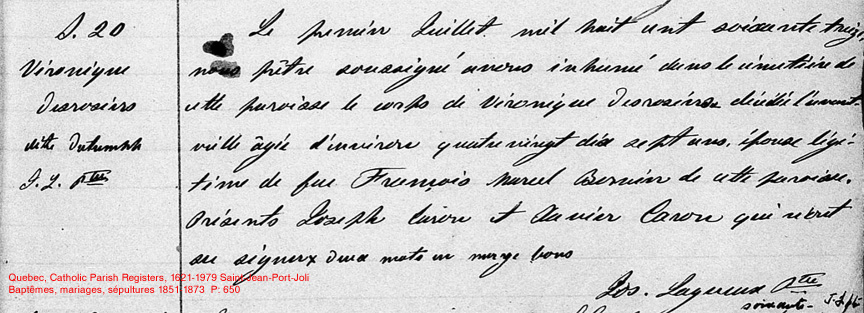 S. 20
Véronique
Desrosiers
dite Dutremble
J. L. Ptre
Le premier Juillet mil huit cent soixante treize,
nous prêtre soussigné avons inhumé dans le cimetière de
cette paroisse le corps de Véronique Desrosiers décédée l'avant-
veille âgée d'environ quatre vingt dix sept ans, épouse légi-
time de feu François Marcel Bernier de cette paroisse.
Présents Joseph Caron et Xavier Caron qui n'ont
su signer x deux mots en marge bons
Jos. Lagueux Ptre
soixante- J. L. ptr
Quebec, Catholic Parish Registers, 1621-1979 Saint-Jean-Port-Joli
Baptêmes, mariages, sépultures 1851-1873 P: 650